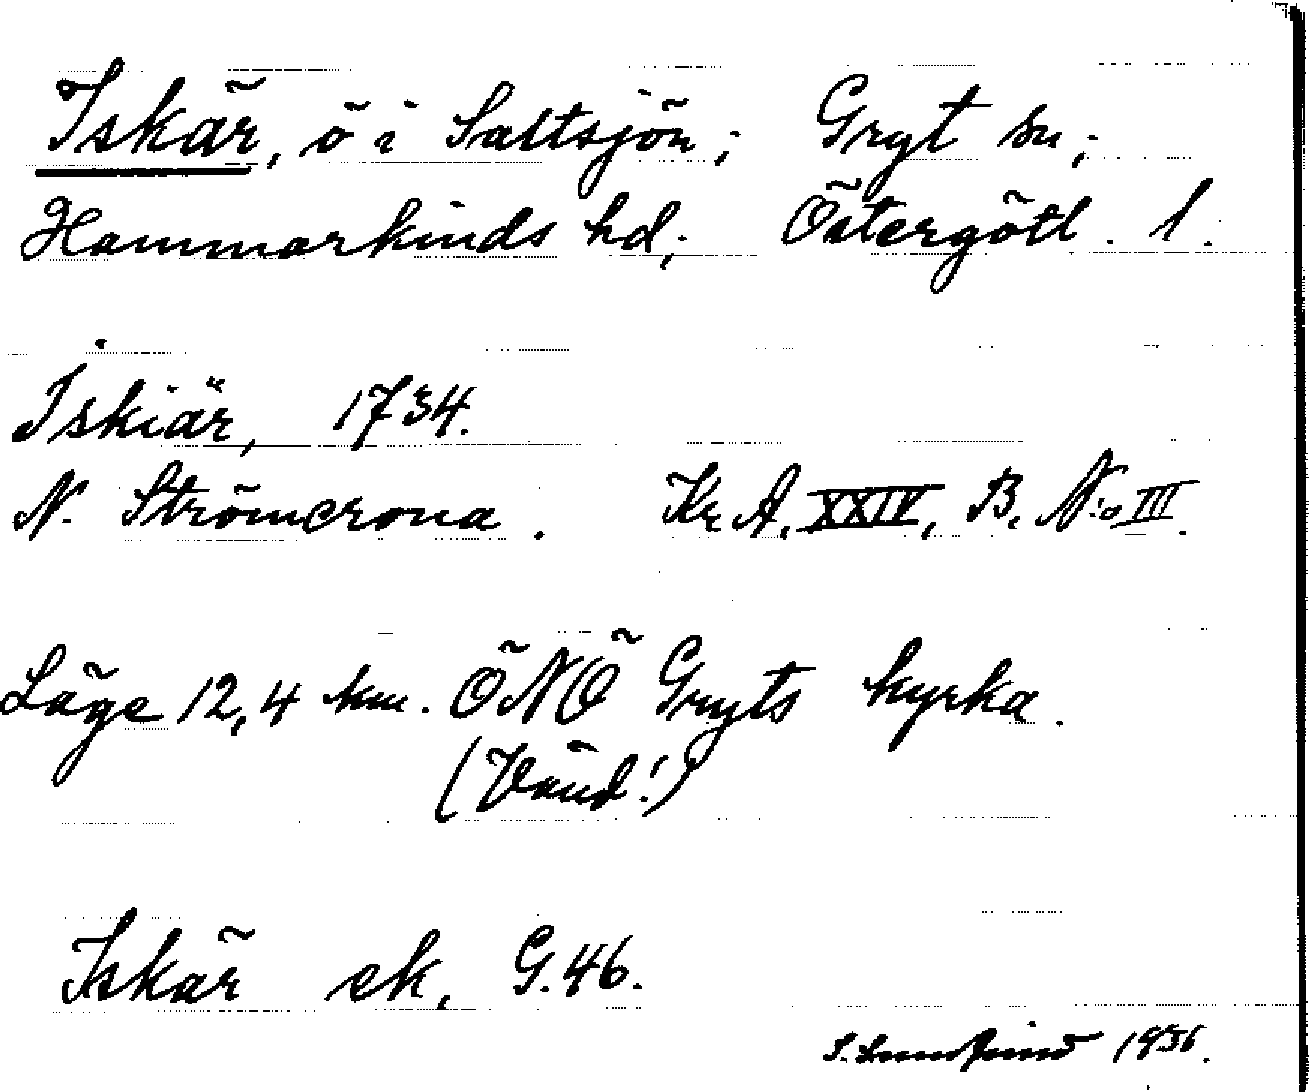 Iskär, ö i Saltsjön; Gryt sn;
Hammarkinds hd; Östergötl. l.
Iskiär, 1734.
N. Strömcrona. Kr. A. XXIV, B. N:o III.
Läge 12,4 km. ÖNÖ Gryts kyrka.
(Vänd!)
Iskär ek, G. 46.
1936.